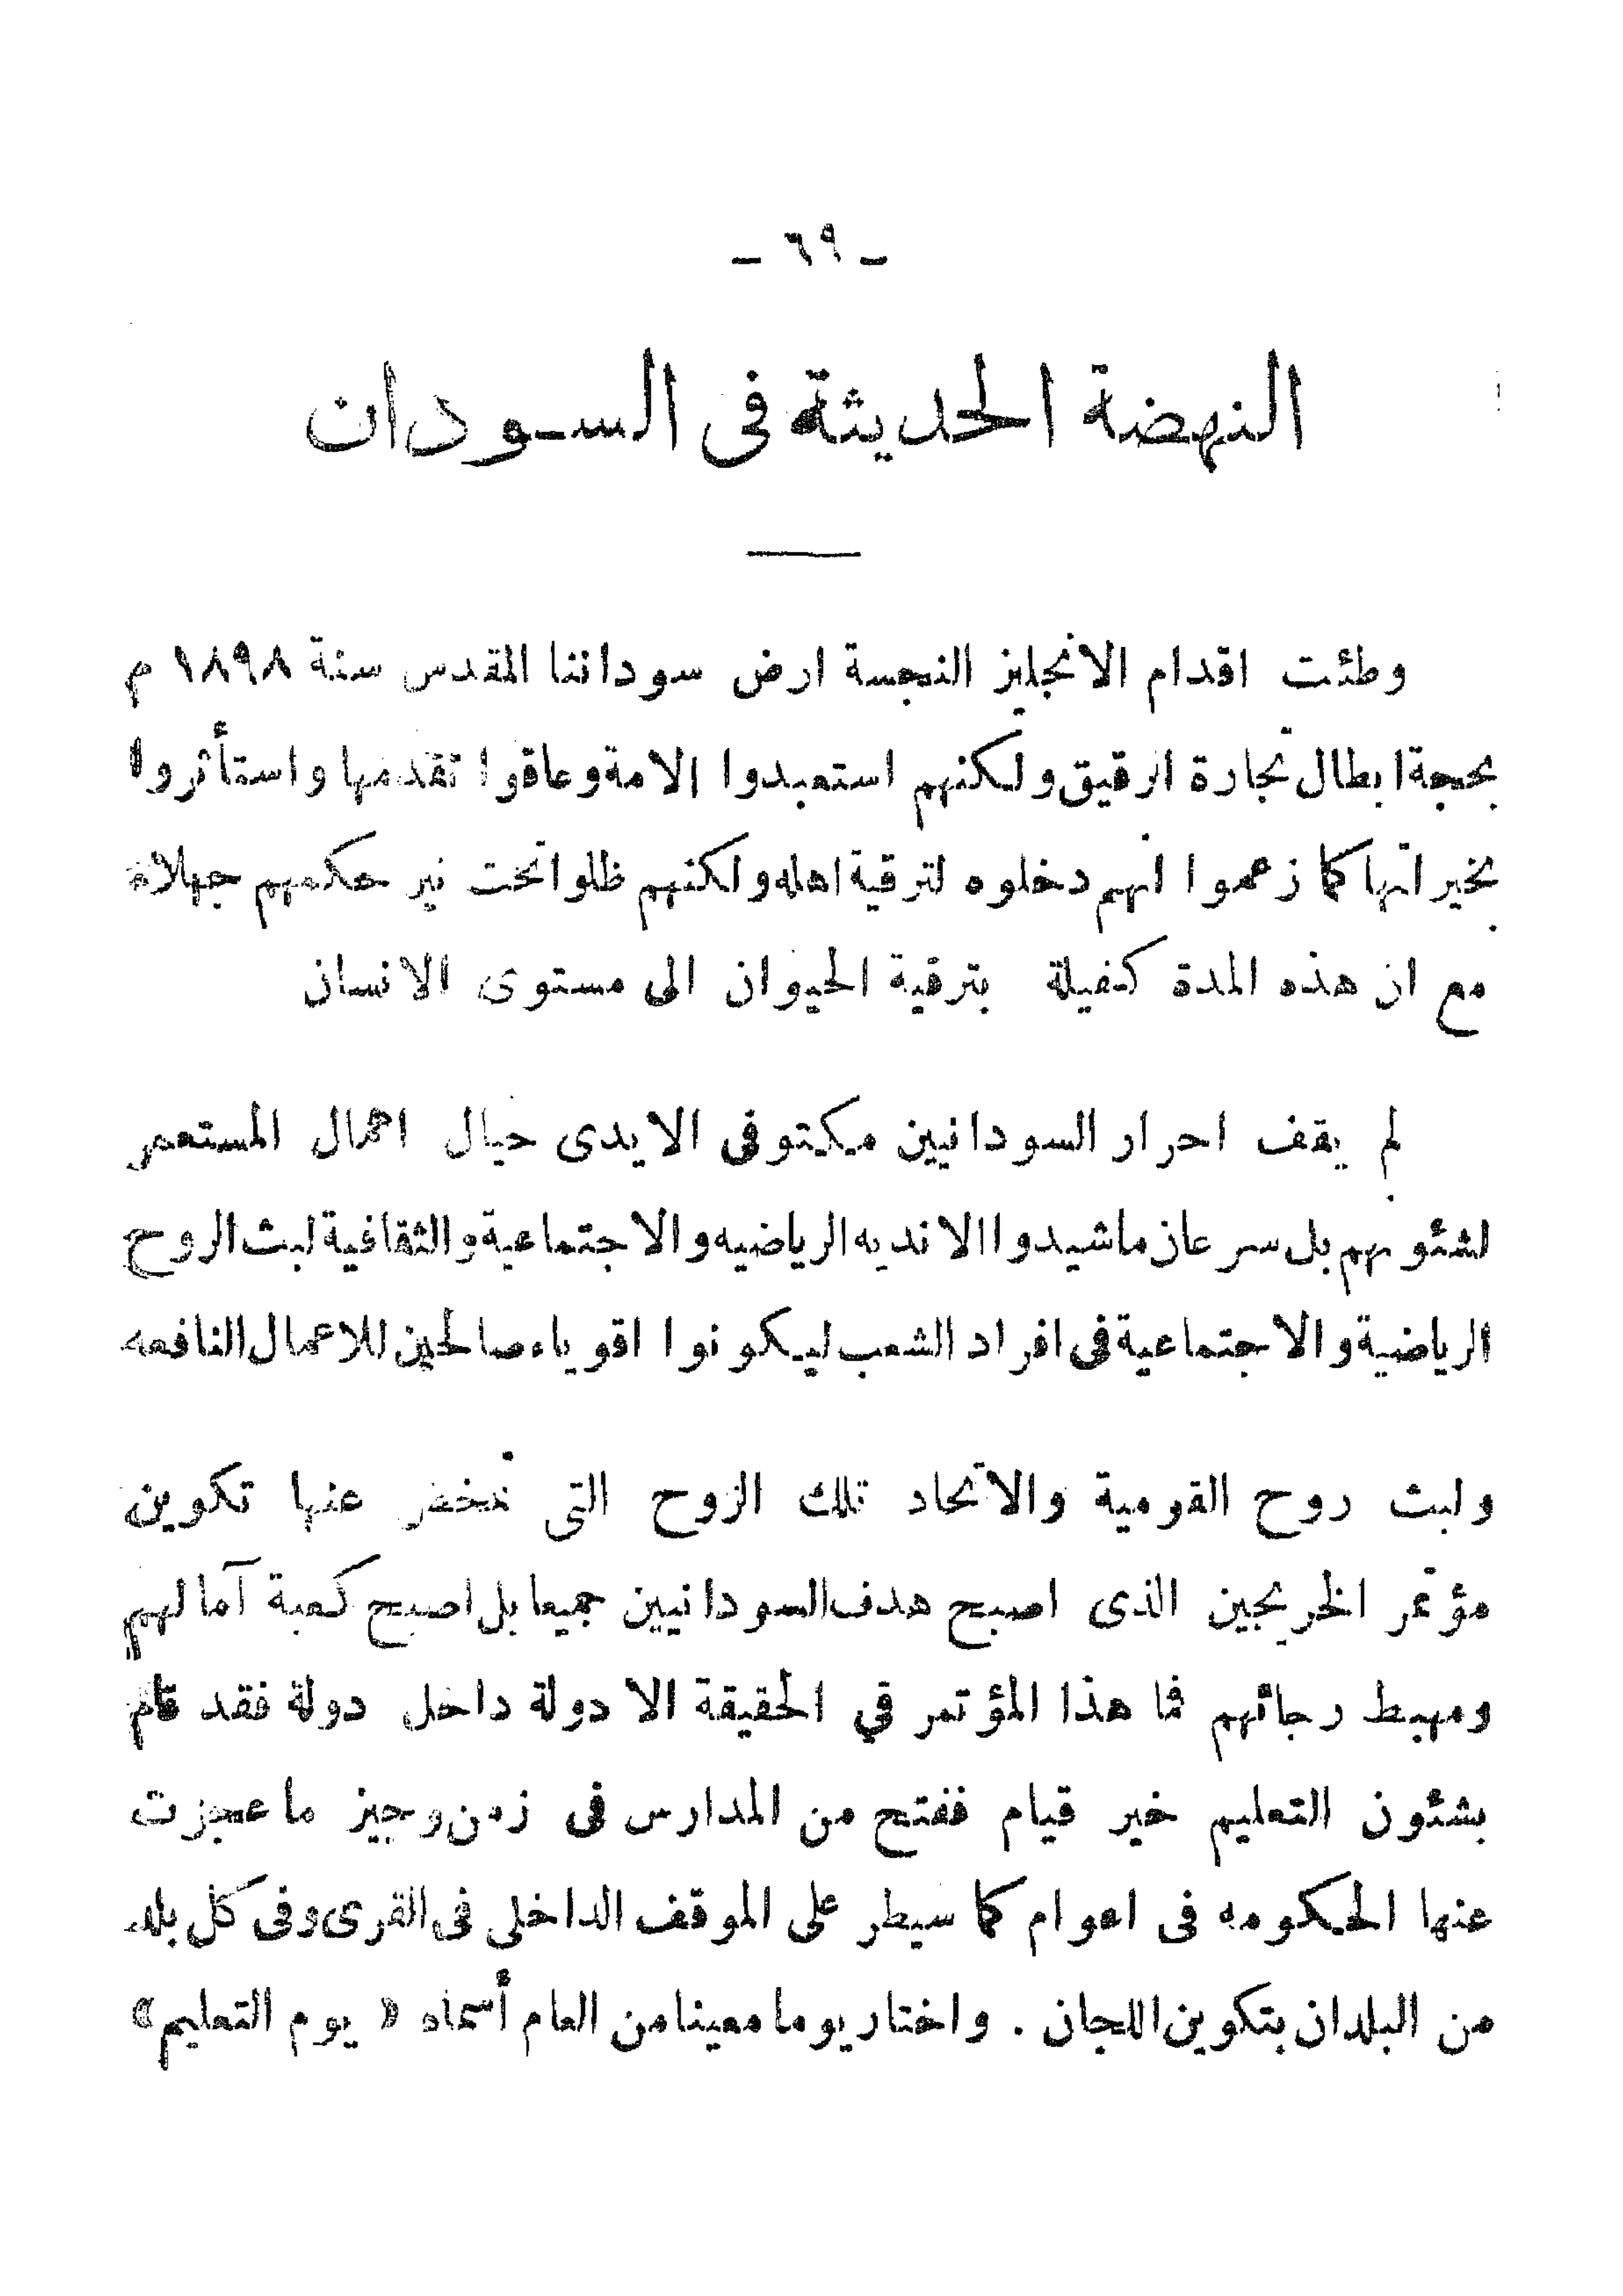 ـ ٦٩ ـ
النهضة الحديثة فى السودان
وطئت اقدام الانجليز النجسة ارض سوداننا المقدس سنة ١٨٩٨ م
بحجة ابطال تجارة الرقيق ولكنهم استعبدوا الامة وعاقوا تقدمها واستأثروا
بخيراتها كما زعموا انهم دخلوه لترقية اهله ولكنهم ظلوا تحت نير حكمهم جهلاء
مع ان هذه المدة كفيلة بترقية الحيوان الى مستوى الانسان
لم يقف احرار السودانيين مكتوفى الايدى حيال اهمال المستعمر
لشئونهم بل سرعان ما شيدوا الانديه الرياضيه والاجتماعية والثقافية لبث الروح
الرياضية والاجتماعية فى افراد الشعب ليكونوا اقوياء صالحين للاعمال النافعه
ولبث روح القومية والاتحاد تلك الروح التى تمخض عنها تكوين
مؤتمر الخريجين الذى اصبح هدف السودانيين جميعا بل اصبح كعبة آمالهم
ومهبط رجائهم فما هذا المؤتمر في الحقيقة الا دولة داخل دولة فقد قام
بشئون التعليم خير قيام ففتح من المدارس فى زمن وجيز ما عجزت
عنها الحكومه فى اعوام كما سيطر على الموقف الداخلى فى القرى وفى كل بلد
من البلدان بتكوين اللجان . واختار يوما معينا من العام أسماه « يوم التعليم »